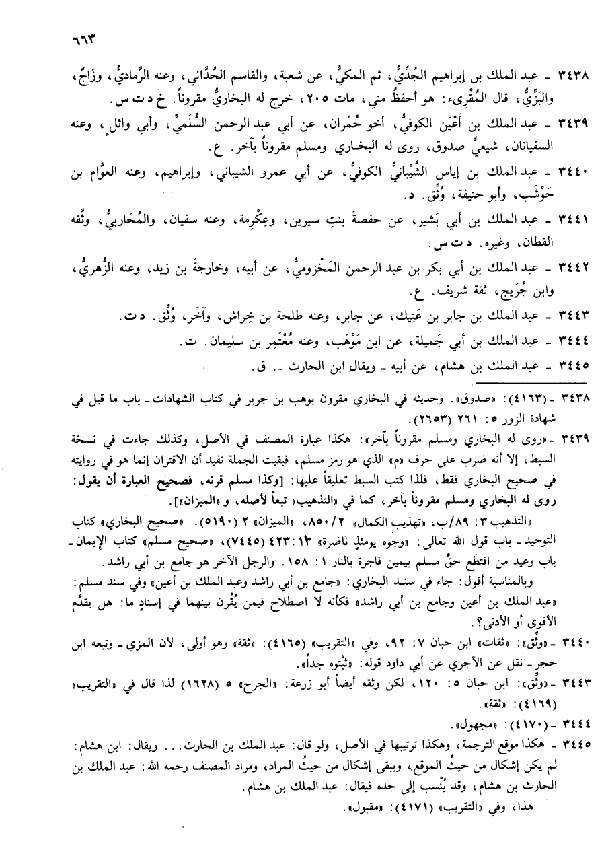 ٦٦٣
٣٤٣٨ ـ عبد الملك بن إبراهيم الجُدِّيُّ، ثم المكيُّ، عن شعبة، والقاسم الحُدَّاني، وعنه الرَّماديُّ، وزَاجٌ،
والبَزِّيُّ، قال المُقْرىء: هو أحفظُ مني، مات ٢٠٥، خرج له البخاري مقروناً. خ د ت س.
٣٤٣٩ ـ عبد الملك بن أَعْيَن الكوفيُّ، أخو حُمْران، عن أبي عبد الرحمن السُّلَميِّ، وأبي وائلٍ، وعنه
السفيانان، شيعيٌّ صدوق، روى له البخاري ومسلم مقروناً بآخر. ع.
٣٤٤٠ ـ عبد الملك بن إياس الشَّيْبانيُّ الكوفيُّ، عن أبي عمرو الشيباني، وإبراهيم، وعنه العوَّام بن
حَوْشَب، وأبو حنيفة، وُثِّق. د.
٣٤٤١ ـ عبد الملك بن أبي بَشير، عن حفصةَ بنتِ سيرين، وعِكْرِمة، وعنه سفيان، والمُحاربيُّ، وثَّقه
القطان، وغيره. د ت س.
٣٤٤٢ ـ عبد الملك بن أبي بكر بن عبد الرحمن المَخْزوميُّ، عن أبيه، وخارجةَ بن زيد، وعنه الزُّهريُّ،
وابن جُرَيج، ثقة شريف. ع.
٣٤٤٣ ـ عبد الملك بن جابر بن عَتِيك، عن جابر، وعنه طلحة بن خِراش، وآخَر، وُثِّق. د ت.
٣٤٤٤ ـ عبد الملك بن أبي جَميلة، عن ابن مَوْهَب، وعنه مُعْتَمِر بن سليمان. ت.
٣٤٤٥ ـ عبد الملك بن هشام، عن أبيه ـ ويقال ابن الحارث ـ. ق.
٣٤٣٨ ـ (٤١٦٣): «صدوق». وحديثه في البخاري مقرون بوهب بن جرير في كتاب الشهادات ـ باب ما قيل في
شهادة الزور ٥: ٢٦١ (٢٦٥٣).
٣٤٣٩ ـ «روى له البخاري ومسلم مقروناً بآخر»: هكذا عبارة المصنف في الأصل، وكذلك جاءت في نسخة
السبط، إلا أنه ضرب على حرف «م» الذي هو رمز مسلم، فبقيت الجملة تفيد أن الاقتران إنما هو في روايته
في صحيح البخاري فقط، فلذا كتب السبط تعليقاً عليها: [وكذا مسلم قرنه، فصحيح العبارة أن يقول:
روى له البخاري ومسلم مقروناً بآخر، كما في «التذهيب» تبعاً لأصله، و«الميزان»].
«التذهيب ٣: ٨٩/ب، «تهذيب الكمال» ٨٥٠/٢، «الميزان» ٢ (٥١٩٠). «صحيح البخاري» كتاب
التوحيد ـ باب قول الله تعالى: «وجوه يومئذٍ ناضرة» ١٣: ٤٢٣ (٧٤٤٥)، «صحيح مسلم» كتاب الإيمان ـ
باب وعيد من اقتطع حقَّ مسلم بيمين فاجرة بالنار ١: ١٥٨. والرجل الآخر هو جامع بن أبي راشد.
وبالمناسبة أقول: جاء في سند البخاري: «جامع بن أبي راشد وعبد الملك بن أعين» وفي سند مسلم:
«عبد الملك بن أعين وجامع بن أبي راشد» فكأنه لا اصطلاح فيمن يُقْرن بينهما في إسنادٍ ما: هل يقدَّم
الأقوى أو الأدنى؟.
٣٤٤٠ ـ «وثِّق»: «ثقات» ابن حبان ٧: ٩٢، وفي «التقريب» (٤١٦٥): «ثقة» وهو أولى، لأن المزي ـ وتبعه ابن
حجر ـ نقل عن الآجري عن أبي داود قوله: «ثبْتوه جداً».
٣٤٤٣ ـ «وثِّق»: ابن حبان ٥: ١٢٠، لكن وثقه أيضاً أبو زرعة: «الجرح» ٥ (١٦٢٨) لذا قال في «التقريب»
(٤١٦٩): «ثقة».
٣٤٤٤ ـ (٤١٧٠): «مجهول».
٣٤٤٥ ـ هكذا موقع الترجمة، وهكذا ترتيبها في الأصل، ولو قال: عبد الملك بن الحارث... ويقال: ابن هشام:
لم يكن إشكال من حيثُ الموقع، ويبقى إشكال من حيثُ المراد، ومراد المصنف رحمه الله: عبد الملك بن
الحارث بن هشام، وقد يُنْسب إلى جده فيقال: عبد الملك بن هشام.
هذا، وفي «التقريب» (٤١٧١): «مقبول».